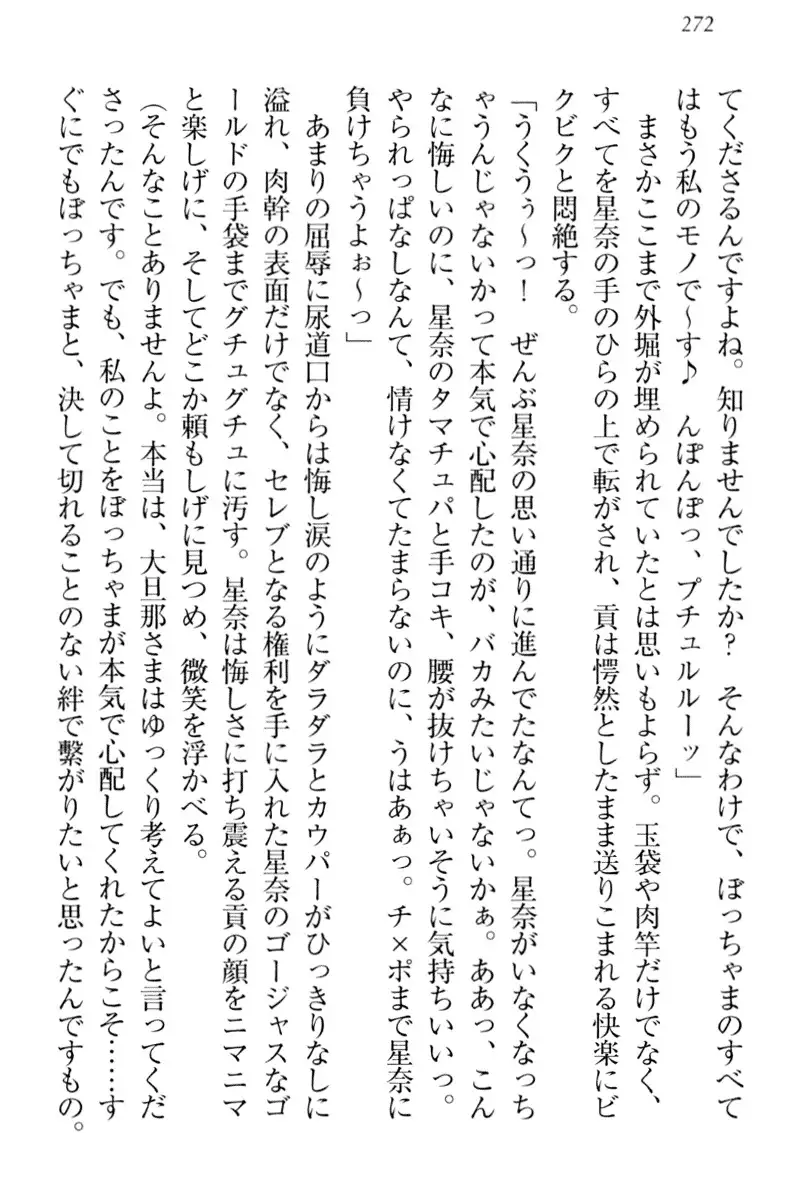 272
てくださるんですよね。知りませんでしたか？　そんなわけで、ぼっちゃまのすべて
はもう私のモノで～す♪　んぽんぽっ、プチュルルーッ」
　まさかここまで外堀が埋められていたとは思いもよらず。玉袋や肉竿だけでなく、
すべてを星奈の手のひらの上で転がされ、貢は愕然としたまま送りこまれる快楽にビ
クビクと悶絶する。
「うくうぅ～っ！　ぜんぶ星奈の思い通りに進んでたなんてっ。星奈がいなくなっち
ゃうんじゃないかって本気で心配したのが、バカみたいじゃないかぁ。ああっ、こん
なに悔しいのに、星奈のタマチュパと手コキ、腰が抜けちゃいそうに気持ちいいっ。
やられっぱなしなんて、情けなくてたまらないのに、うはあぁっ。チ×ポまで星奈に
負けちゃうよぉ～っ」
　あまりの屈辱に尿道口からは悔し涙のようにダラダラとカウパーがひっきりなしに
溢れ、肉幹の表面だけでなく、セレブとなる権利を手に入れた星奈のゴージャスなゴ
ールドの手袋までグチュグチュに汚す。星奈は悔しさに打ち震える貢の顔をニマニマ
と楽しげに、そしてどこか頼もしげに見つめ、微笑を浮かべる。
（そんなことありませんよ。本当は、大旦那さまはゆっくり考えてよいと言ってくだ
さったんです。でも、私のことをぼっちゃまが本気で心配してくれたからこそ……す
ぐにでもぼっちゃまと、決して切れることのない絆で繋がりたいと思ったんですもの。